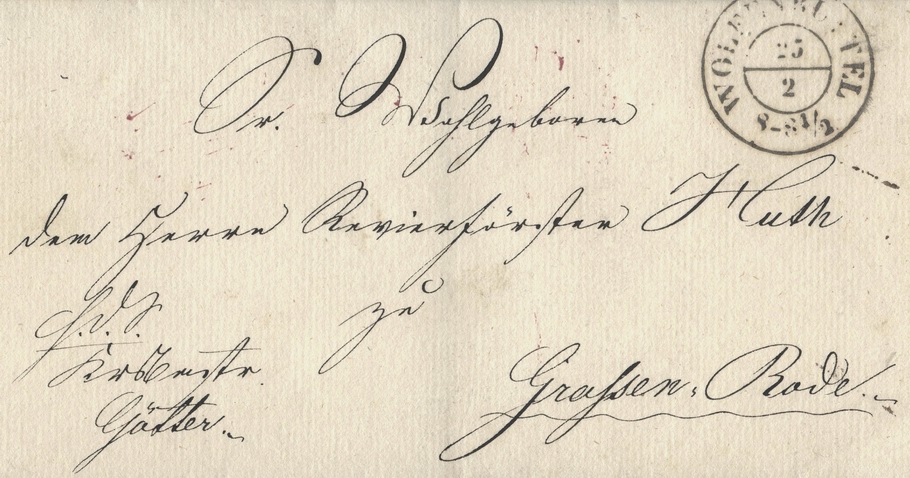 WOLFENBÜTTEL
25
2
8-8½
Sr. Wohlgeboren
dem Herrn Revierförster Huth
zu
Grassen-Rode.
h. d. S.
Götter.